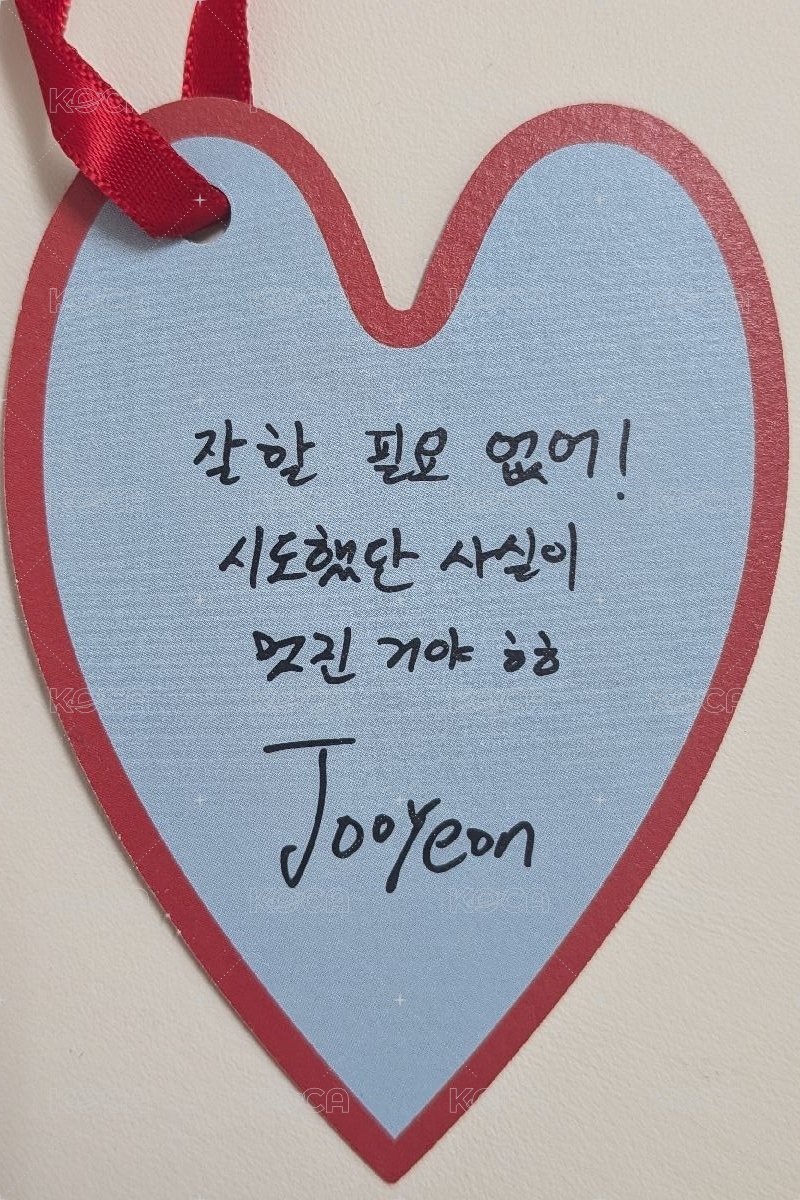 잘할 필요 없어!
시도했단 사실이
멋진 거야 ㅎㅎ
Jooyeon